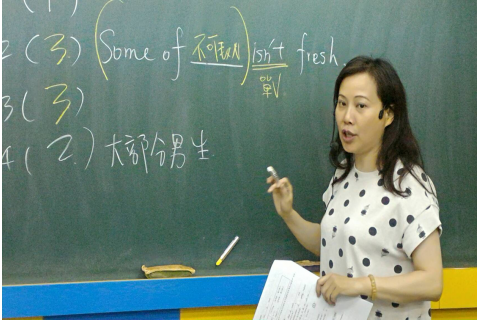 (1)
2 (3.) (Some of 不可數N) isn't fresh.
單V.
3 (3)
4 (2.) 大部分男生